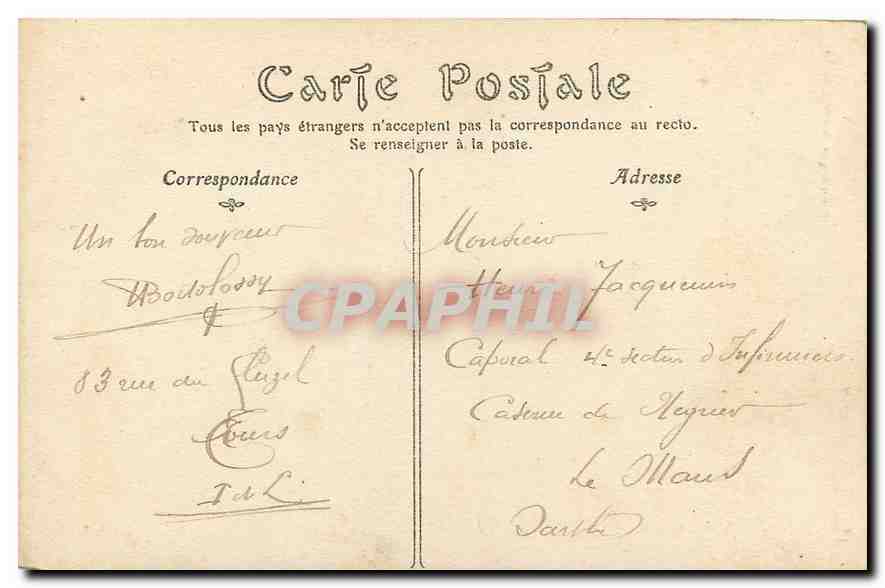 Carte Postale
Tous les pays étrangers n'acceptent pas la correspondance au recto.
Se renseigner à la poste.
Correspondance
Un bon souvenir
83 rue du
Tours
I de L.
Adresse
Monsieur
Henri Jacquemin
Caporal 4e section d'Infirmiers
Caserne de Negrier
Le Mans
Sarthe
CPAPHIL